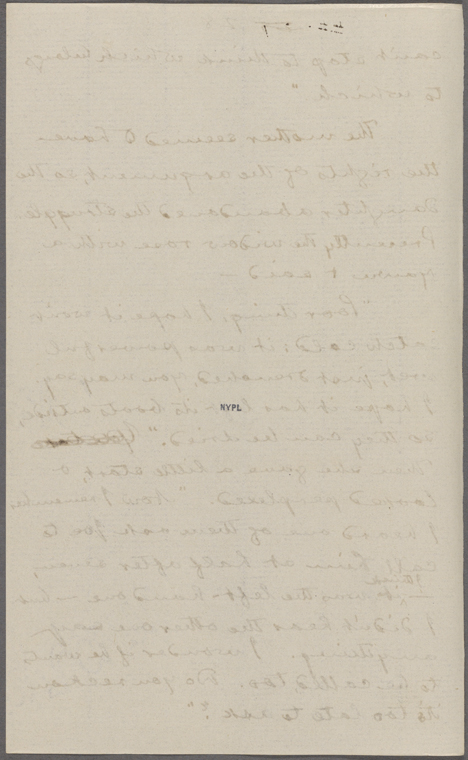 can't stop to think which belongs
to which."
The mother seemed to have
the rights of the argument, so the
daughter abandoned the struggle.
Presently the widow rose with a
yawn & said —
"Poor thing, I hope it won't
catch cold; it was powerful
wet, just drenched, you may say.
I hope it has left its boots outside,
so they can be dried."
Then she gave a little start, &
looked perplexed. "Now I remember
I heard one of them ask Joe to
call him at half after seven,
it was the left-hand one — but
I didn't hear the other one say
anything. I wonder if he wants
to be called too. Do you reckon
it's too late to ask?"
NYPL